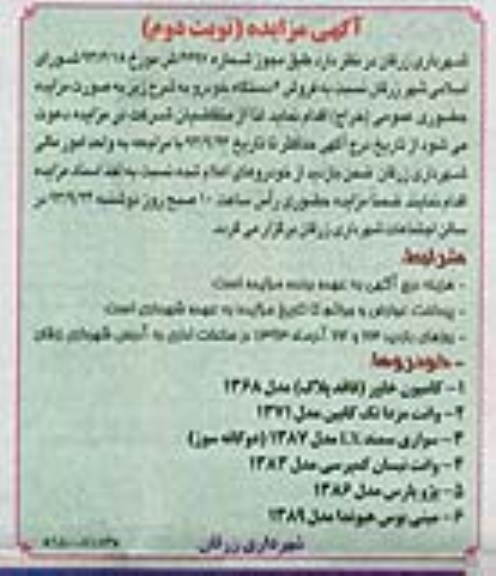 آگهی مزایده (نوبت دوم)
شهرداری زرقان در نظر دارد طبق مجوز شماره مورخ شورای
اسلامی شهر زرقان نسبت به فروش ۶ دستگاه خودرو به شرح زیر به صورت مزایده
حضوری عمومی (حراج) اقدام نماید لذا از متقاضیان شرکت در مزایده دعوت
می شود از تاریخ درج آگهی حداکثر تا تاریخ با مراجعه به واحد امور مالی
شهرداری زرقان ضمن بازدید از خودروهای اعلام شده نسبت به اخذ اسناد مزایده
اقدام نمایند ضمنا مزایده حضوری رأس ساعت ۱۰ صبح روز دوشنبه در
سالن اجتماعات شهرداری زرقان برگزار می گردد.
شرایط:
- هزینه درج آگهی به عهده برنده مزایده است
- پرداخت عوارض و جرائم تا تاریخ مزایده به عهده شهرداری است
- روزهای بازدید و آذرماه در ساعات اداری به آدرس شهرداری زرقان
- خودروها:
۱- کامیون خاور (فاقد پلاک) مدل ۱۳۶۸
۲- وانت مزدا تک کابین مدل ۱۳۷۱
۳- سواری سمند LX مدل ۱۳۸۷ (دوگانه سوز)
۴- وانت نیسان کمپرسی مدل ۱۳۸۳
۵- پژو پارس مدل ۱۳۸۶
۶- مینی بوس هیوندا مدل ۱۳۸۹
شهرداری زرقان